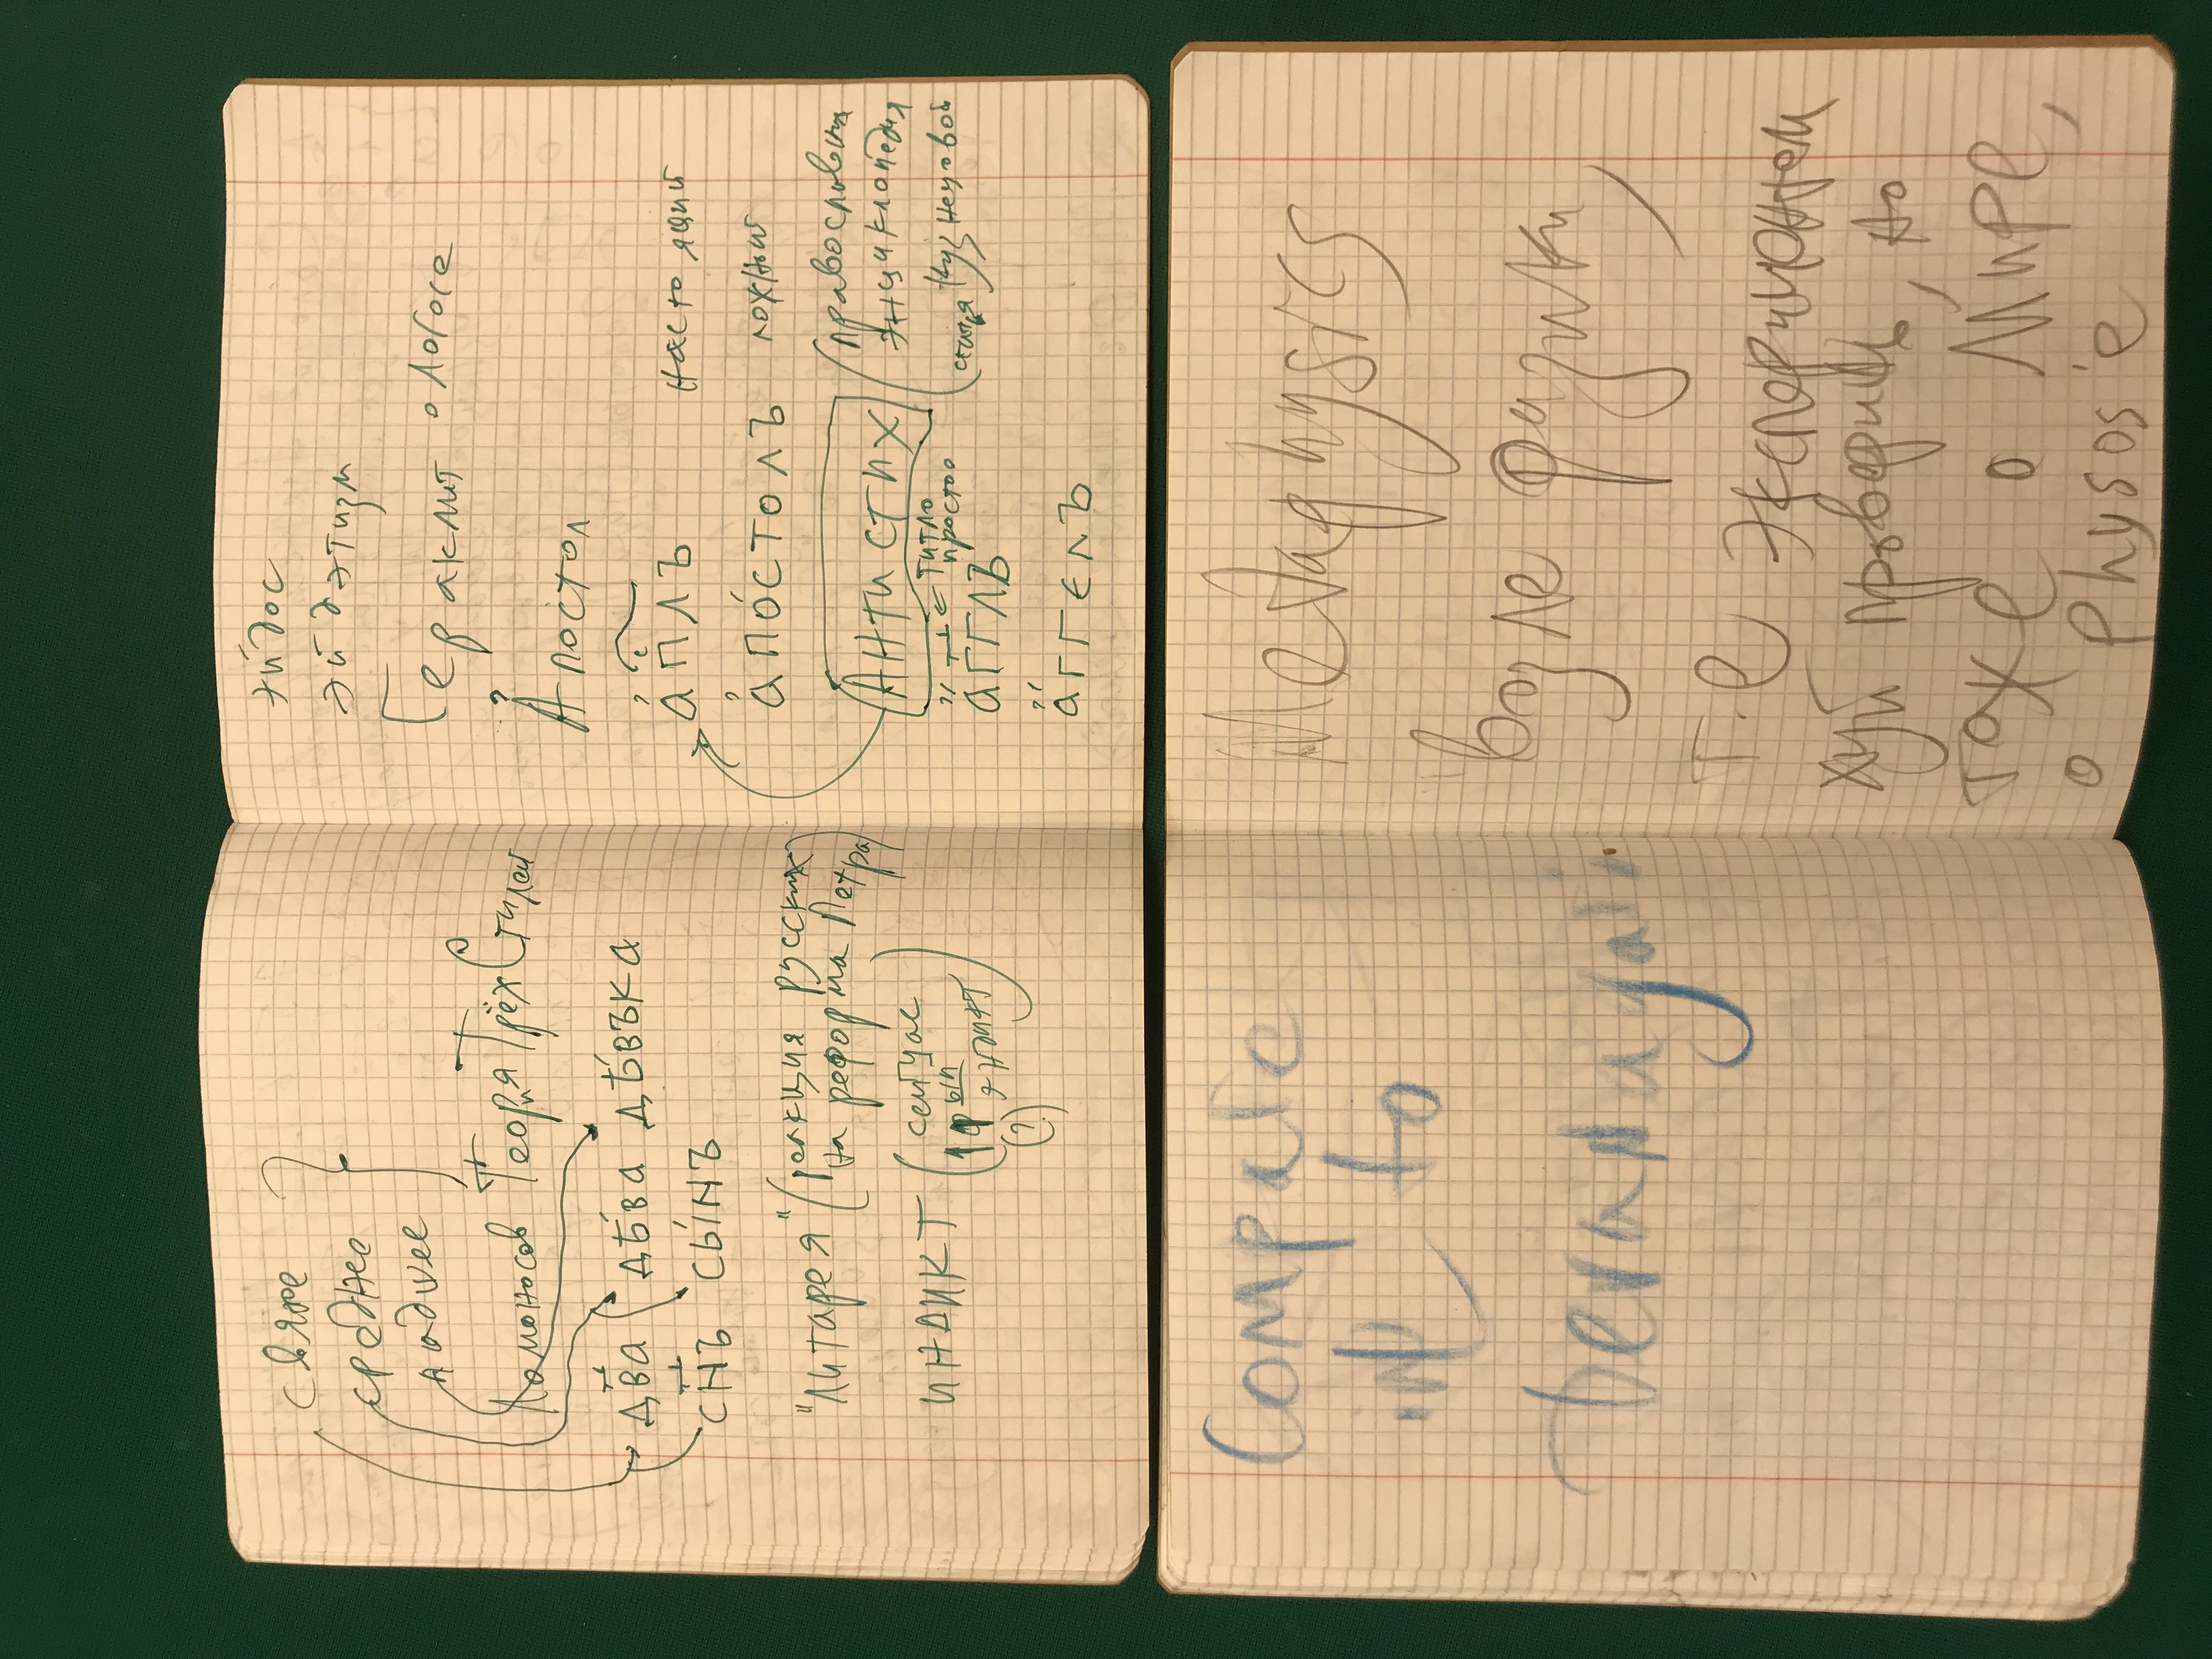 святое
среднее
падшее
Ломоносов Теория Трёх Стилей
дв҃а дѣ́ва дѣ́въка
сн҃ъ сы́нъ
"Литарея" (реакция русских
на реформа Петра)
индикт (сейчас
14ый
индикт)
(?)
эйдос
эйдэтизм
Гераклит о логосе
А҆постол
а҆пⷭ҇лъ настоящий
а҆по́столъ ложный
Антистих (православная
энциклопедия
статья Кузнецовой
← титло
простое
а҆́гг҃лъ
а҆́ггєлъ
Compare
it to
Metaphysics
возле физики,
т.е экспериментом
хуй проверишь, но
тоже о Мире,
о physos'е